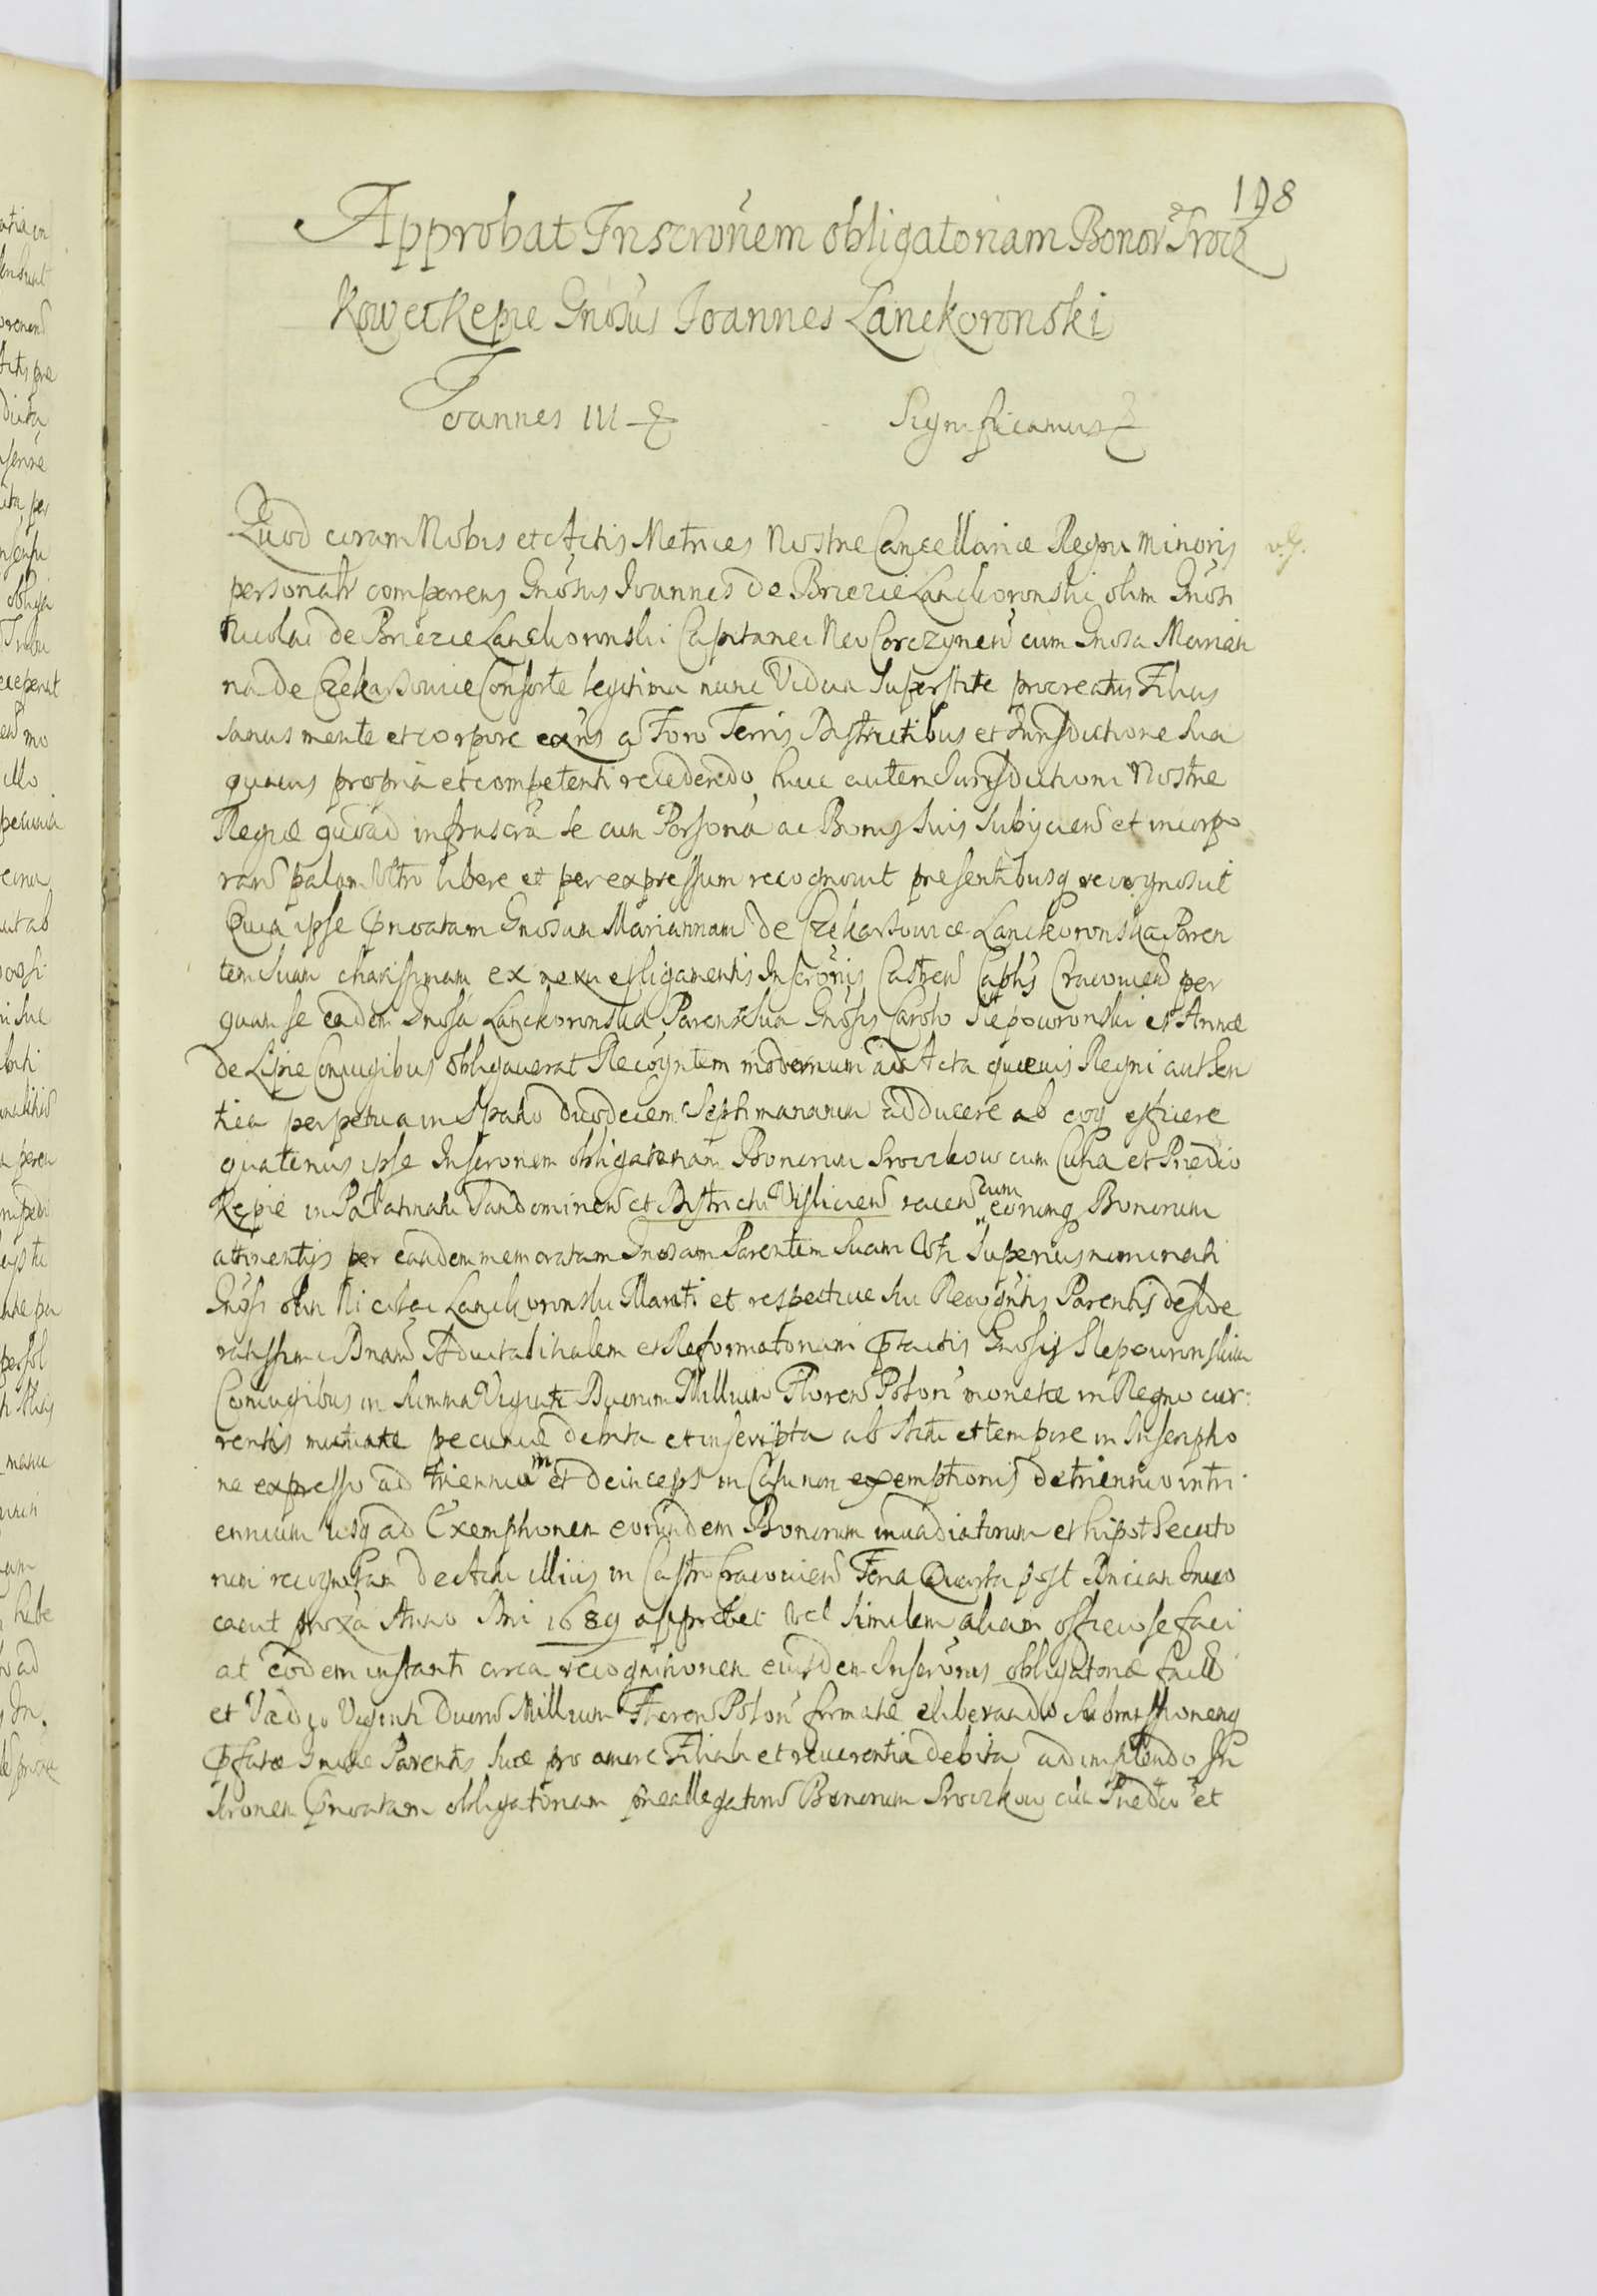 198
Approbat Inscronem obligatoriam Bonor Srocz
kow et Kepie Gnosus Joannes Lanckoronski
Joannes III Significamus
Quod coram Nobis et Actis Metrices Nostræ Cancellariæ Regni Minoris
personalr comparens Gnosus Joannes de Brzezie Lanckoronski olim Gnosi
Nicolai de Brzezie Lanckoronski Capitanei Neo Corczynen cum Gnosa Marian
na de Consorte legitima nunc Vidua Superstite procreatus Filius
sanus mente et corpore exns a Foro Terris Districtibus et Jurisdictione Sua
quavis propria et competenti recedendo, huic autem Jurisdictioni Nostræ
Regiæ quoad infrascra se cum Persona ac Bonis Suis Subijciens et incorpo
rans palam Ultro libere et per expressum recognovit presentibusq recognoscit
Quia ipse Gnosam Mariannam de Lanckoronska Paren
tem Suam charissimam ex nexu et ligamentis Inscronis Castren Caplis Cracovien per
quam se eadem Gnosa Lanckoronska Parens Sua Gnosis Carolo Slepowronski et Annæ
de Lipie Conjugibus obligaverat Recogntem modernum ad Acta quævis Regni authen
tica perpetua in Spatio duodecem Septimanarum adducere ab eoq efficere
quatenus ipse Inscronem obligatoriam Bonorum Sroczkow cum Curia et Prædio
Kepie in Palatinatu Sandomirien et Districtu Visliciens jacen cum eorumq Bonorum
attinentijs per eandem memoratam Gnosam Parentem Suam Uti Superius nominati
Gnosi olim Nicolai Lanckoronski Mariti et respective Sui Recogntis Parentis deside
ratissimi Advitalitalem et Reformatoriam Gnosis Slepowronskim
Conjugibus in Summa Viginti Duorum Millium Floren Polon monetæ in Regno cur
rentis mutuatæ pecuniæ debita et inscripta ab Actu et tempore in Inscriptio
ne expresso ad triennium et deinceps in Casu non exemptionis de triennio in tri
ennium usq ad Exemptionem eorundem Bonorum invadiatorum et hipothecato
rum recognitam de Actu illius in Castro Cracovien Feria Quarta post Dnicam Invo
cavit proxa Anno Dni 1689 approbet vel Similem aliam officiose faci
at eodem instanti circa recognitionem eiusdem Inscronis obligatoriæ
et Vadio Viginti Duorum Millium Floren Polon firmatæ eliberando Submissioneq
Parentis Suæ pro amore Filiali et reverentia debita adimplendo In
scronem obligatoriam preallegatorum Bonorum Sroczkow cum Prædio et